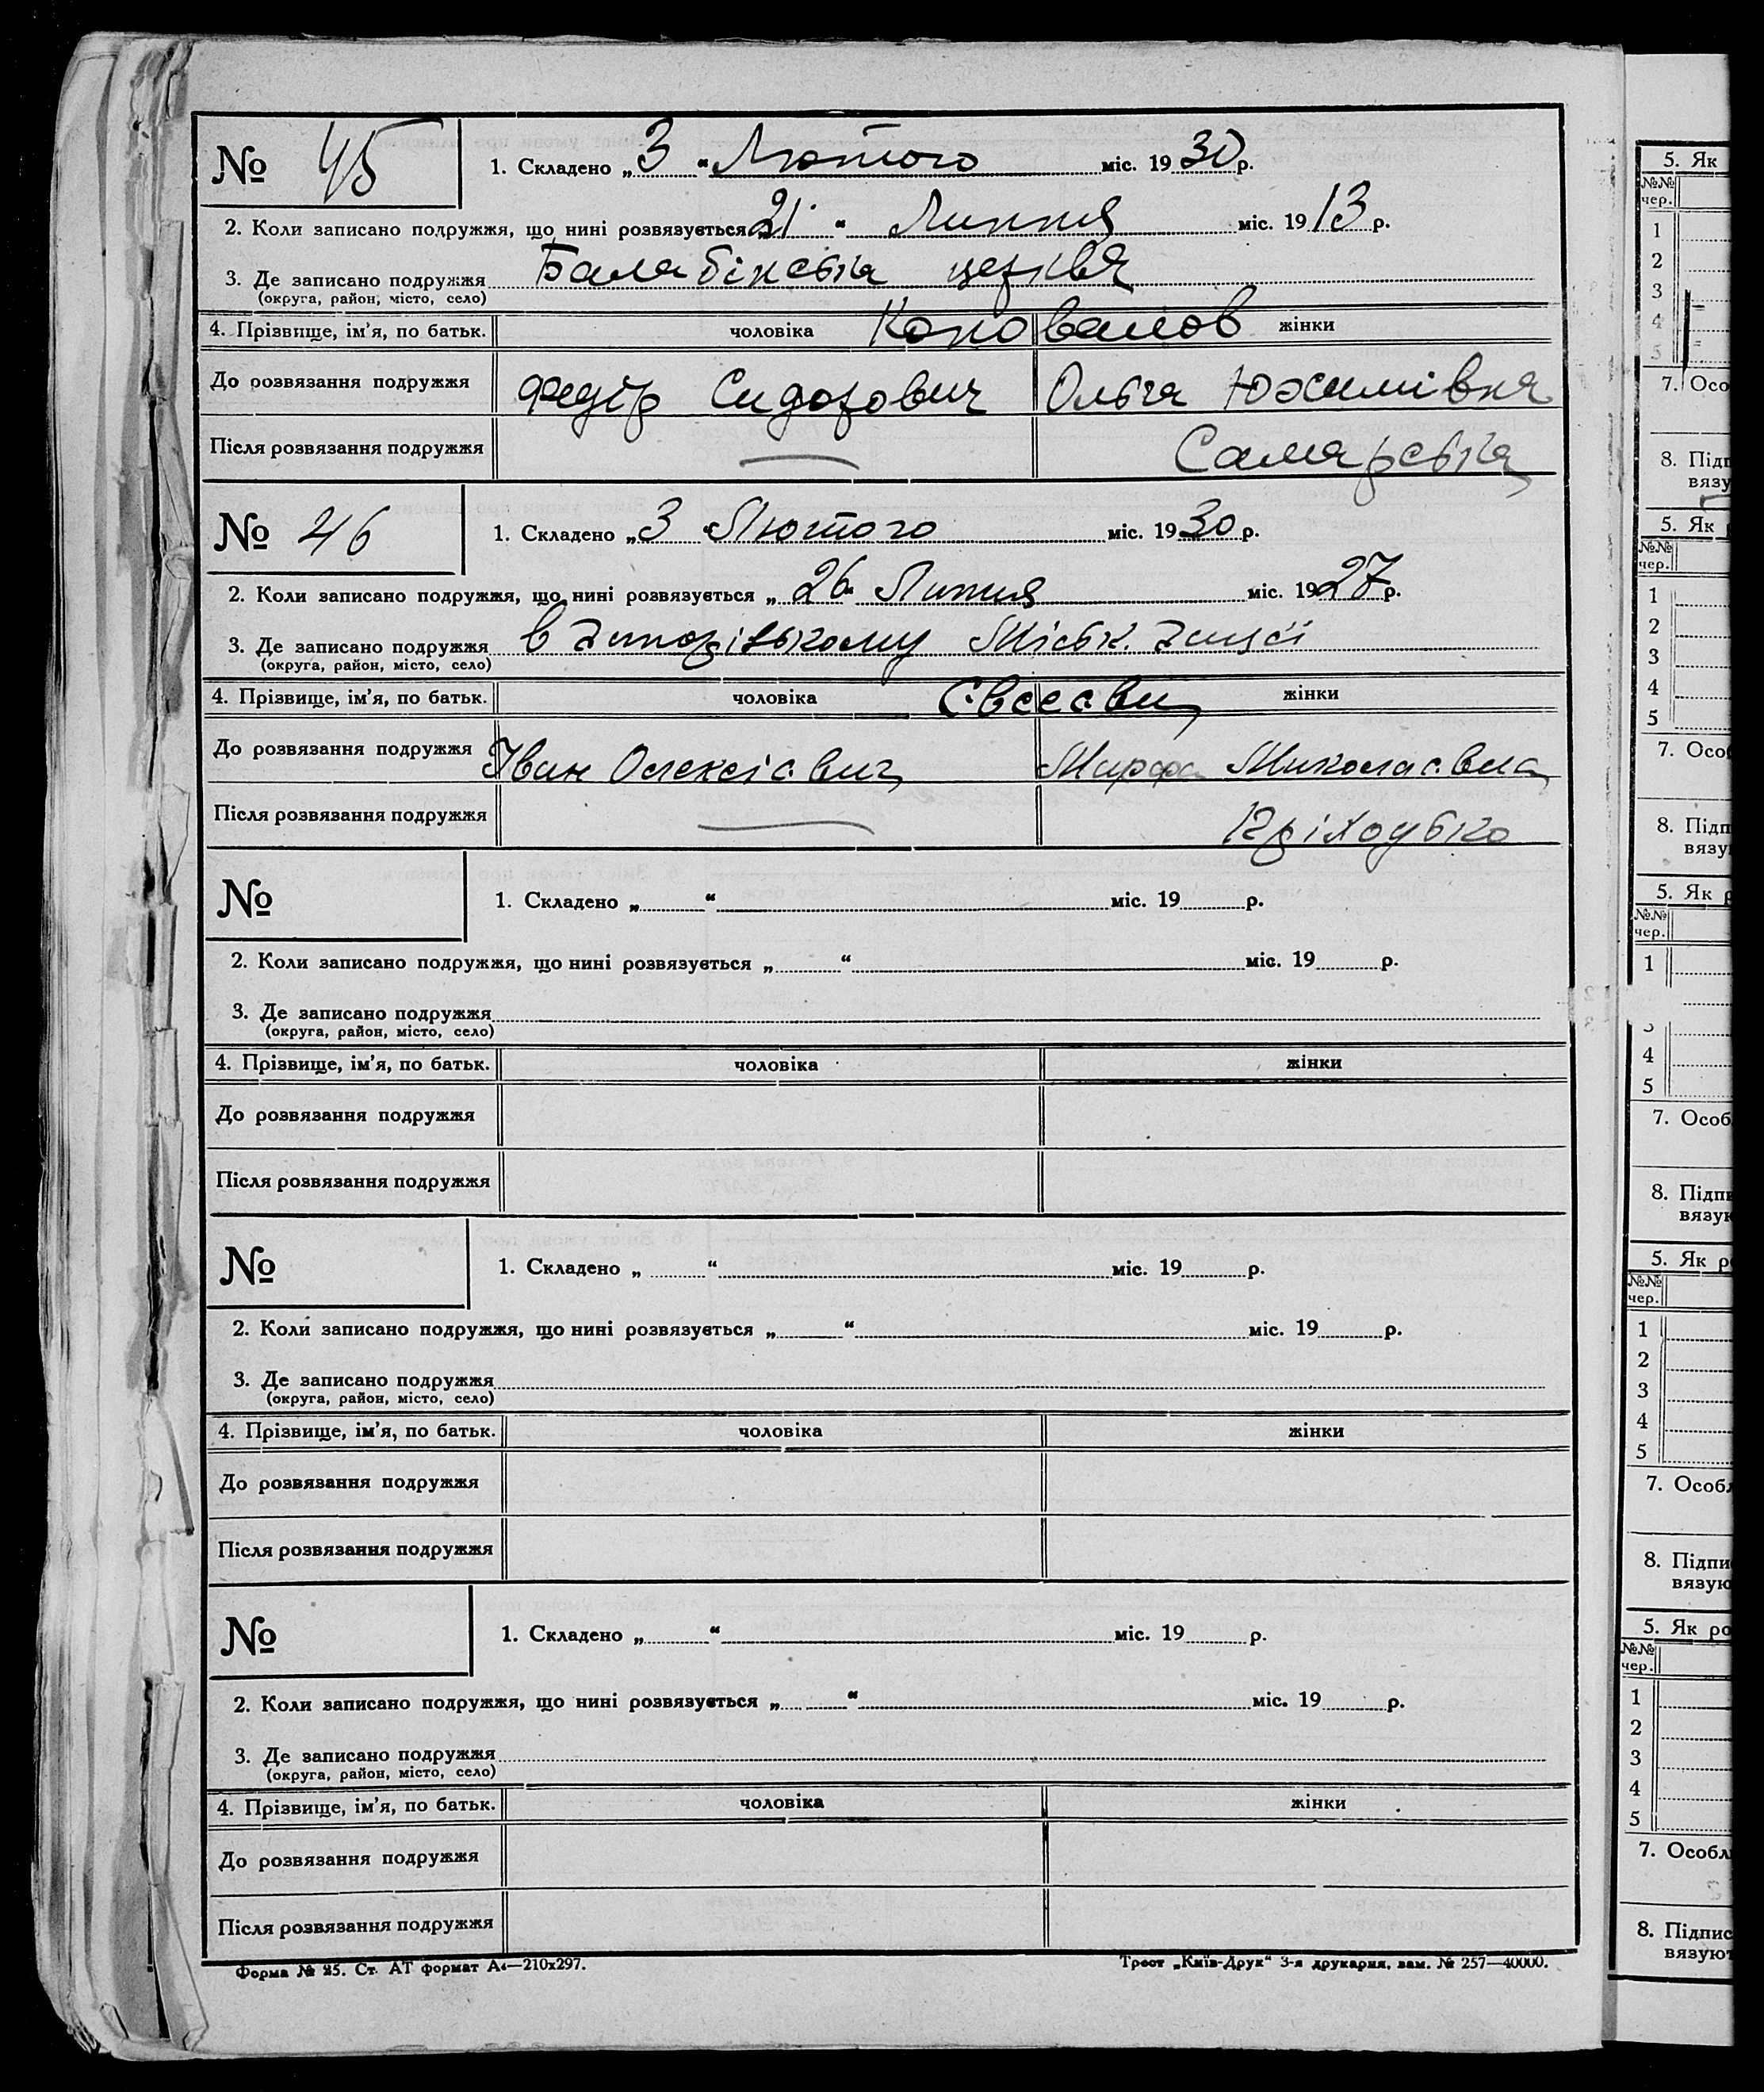 № 45
1. Складено „3“ Лютого міс. 1930 р.
2. Коли записано подружжя, що нині розвязується „21“ Липня міс. 1913 р.
3. Де записано подружжя Балабінська церква
(округа, район, місто, село)
4. Прізвище, ім'я, по батьк. чоловіка Коновалов жінки
До розвязання подружжя Федір Сидорович Ольга Юхимівна
Після розвязання подружжя — Самарська
№ 46
1. Складено „3“ Лютого міс. 1930 р.
2. Коли записано подружжя, що нині розвязується „26“ Липня міс. 1927 р.
3. Де записано подружжя в Запорізькому Міськ. Загсі
(округа, район, місто, село)
4. Прізвище, ім'я, по батьк. чоловіка Євсєєви жінки
До розвязання подружжя Іван Олексієвич Марфа Миколаєвна
Після розвязання подружжя — Пріходько
№
1. Складено „ “ міс. 19 р.
2. Коли записано подружжя, що нині розвязується „ “ міс. 19 р.
3. Де записано подружжя
(округа, район, місто, село)
4. Прізвище, ім'я, по батьк. чоловіка жінки
До розвязання подружжя
Після розвязання подружжя
№
1. Складено „ “ міс. 19 р.
2. Коли записано подружжя, що нині розвязується „ “ міс. 19 р.
3. Де записано подружжя
(округа, район, місто, село)
4. Прізвище, ім'я, по батьк. чоловіка жінки
До розвязання подружжя
Після розвязання подружжя
№
1. Складено „ “ міс. 19 р.
2. Коли записано подружжя, що нині розвязується „ “ міс. 19 р.
3. Де записано подружжя
(округа, район, місто, село)
4. Прізвище, ім'я, по батьк. чоловіка жінки
До розвязання подружжя
Після розвязання подружжя
Форма № 25. Ст. АТ формат А4—210х297.
Трест „Київ-Друк“ 3-я друкарня, зам. № 257—40000.
5. Як
№№
чер.
1
2
3
4
5
7. Осо
8. Підп
вязу
5. Як р
№№
чер.
1
2
3
4
5
7. Особ
8. Підп
вязу
5. Як р
№№
чер.
1
3
4
5
7. Особ
8. Підпи
вязую
5. Як ро
№№
чер.
1
2
3
4
5
7. Особл
8. Підпи
вязую
5. Як ро
№№
чер.
1
2
3
4
5
7. Особл
8. Підпис
вязуют